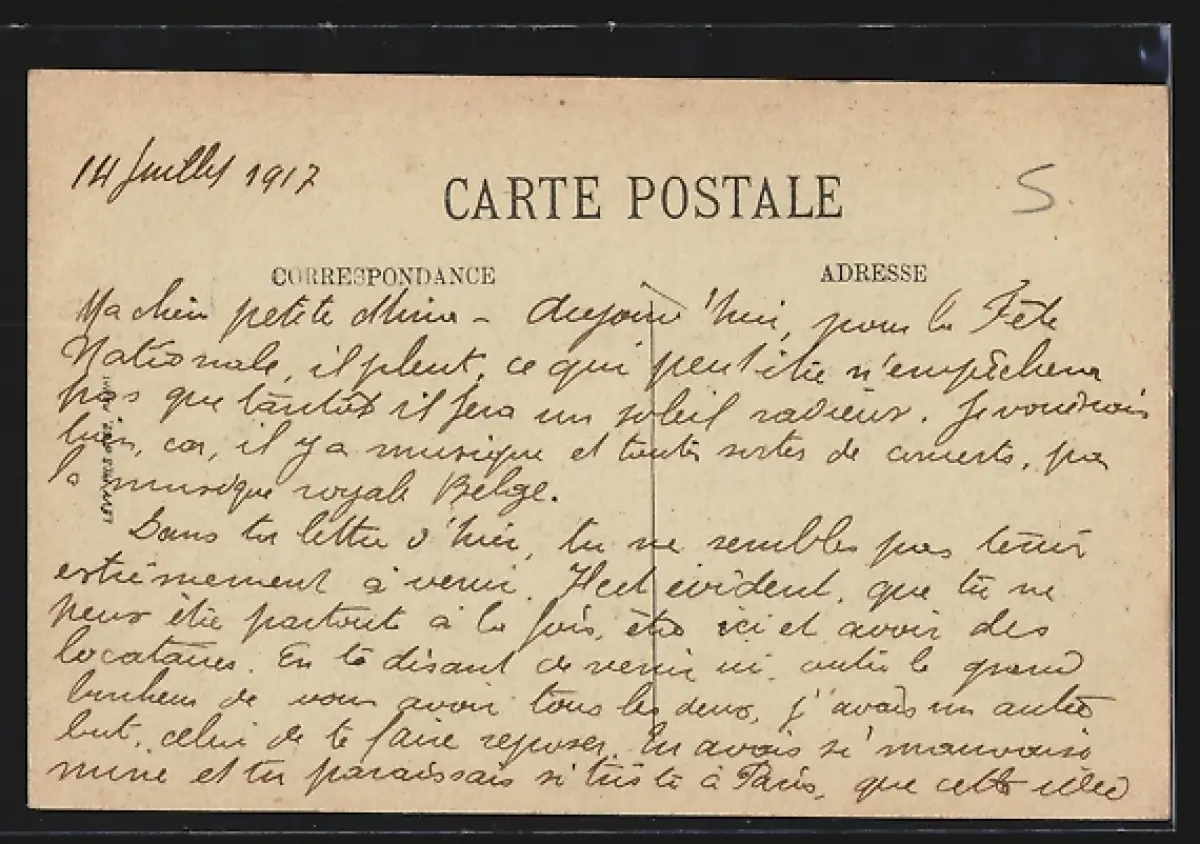 14 Juillet 1917
CARTE POSTALE
5
CORRESPONDANCE
ADRESSE
Ma chère petite Mima - Aujourd'hui, pour la Fête
Nationale, il pleut, ce qui peut être n'empêchera
pas que tantôt il fera un soleil radieux. Je voudrais
bien, car, il y a musique et toutes sortes de concerts, par
la musique royale Belge.
Dans ta lettre d'hier, tu ne sembles pas tenir
extrêmement à venir. Il est évident, que tu ne
peux être partout à la fois, être ici et avoir des
locataires. En te disant de venir ici, outre le grand
bonheur de vous avoir tous les deux, j'avais un autre
but, celui de te faire reposer. Tu avais si mauvaise
mine et tu paraissais si triste à Paris, que cette idée